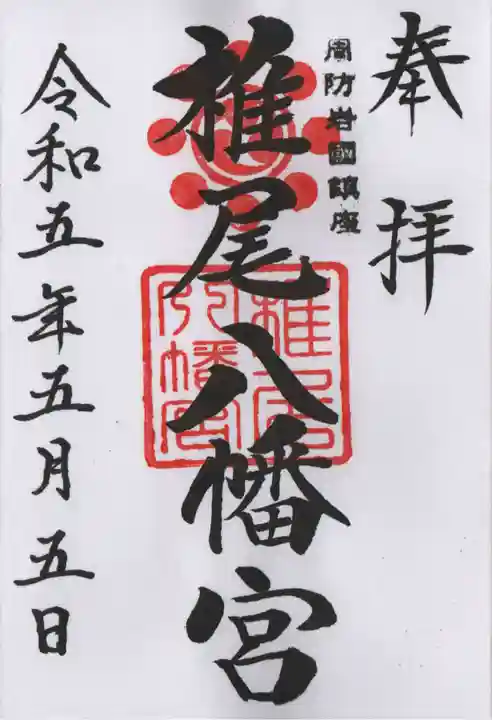 奉拝
周防岩國鎮座
椎尾八幡宮
椎尾八幡宮
令和五年五月五日